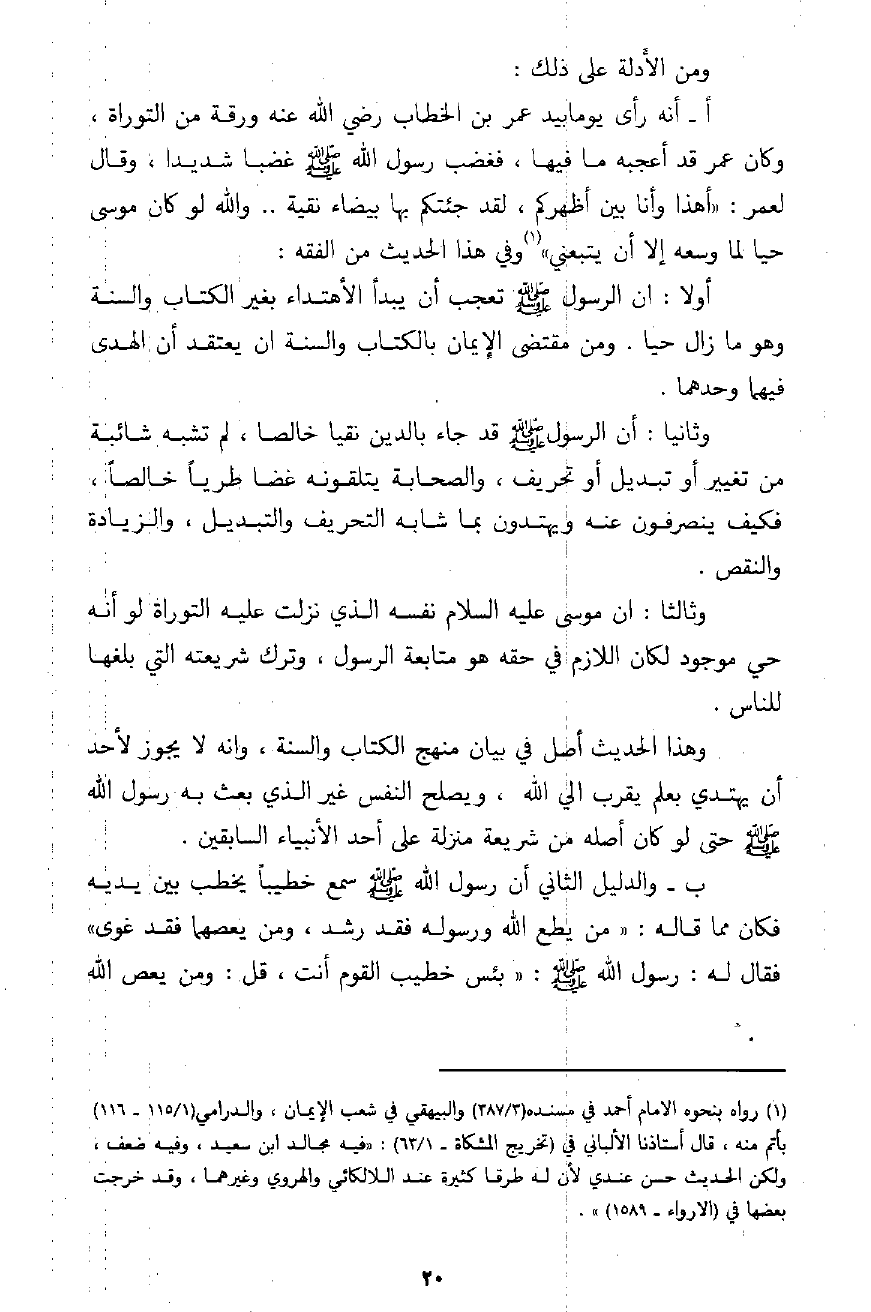 ومن الأدلة على ذلك :
أ ـ أنه رأى يومابيد عمر بن الخطاب رضي الله عنه ورقة من التوراة ،
وكان عمر قد أعجبه ما فيها ، فغضب رسول الله ﷺ غضبا شديدا ، وقال
لعمر : «أهذا وأنا بين أظهركم ، لقد جئتكم بها بيضاء نقية .. والله لو كان موسى
حيا لما وسعه إلا أن يتبعني»(١)وفي هذا الحديث من الفقه :
أولا : ان الرسول ﷺ تعجب أن يبدأ الأهتداء بغير الكتاب والسنة
وهو ما زال حيا . ومن مقتضى الإيمان بالكتاب والسنة ان يعتقد أن الهدى
فيهما وحدهما .
وثانيا : أن الرسول ﷺ قد جاء بالدين نقيا خالصا ، لم تشبه شائبة
من تغيير أو تبديل أو تحريف ، والصحابة يتلقونه غضا طرياً خالصاً ،
فكيف ينصرفون عنه ويهتدون بما شابه التحريف والتبديل ، والزيادة
والنقص .
وثالثا : ان موسى عليه السلام نفسه الذي نزلت عليه التوراة لو أنه
حي موجود لكان اللازم في حقه هو متابعة الرسول ، وترك شريعته التي بلغها
للناس .
وهذا الحديث أصل في بيان منهج الكتاب والسنة ، وانه لا يجوز لأحد
أن يهتدي بعلم يقرب الي الله ، ويصلح النفس غير الذي بعث به رسول الله
ﷺ حتى لو كان أصله من شريعة منزلة على أحد الأنبياء السابقين .
ب ـ والدليل الثاني أن رسول الله ﷺ سمع خطيباً يخطب بين يديه
فكان مما قاله : « من يطع الله ورسوله فقد رشد ، ومن يعصهما فقد غوى»
فقال له : رسول الله ﷺ : « بئس خطيب القوم أنت ، قل : ومن يعص الله
(١) رواه بنحوه الامام أحمد في مسنده(٣٨٧/٣) والبيهقي في شعب الإيمان ، والدرامي(١١٥/١ ـ ١١٦)
بأتم منه ، قال أستاذنا الألباني في (تخريج المشكاة ـ ٦٣/١) : «فيه مجالد ابن سعيد ، وفيه ضعف ،
ولكن الحديث حسن عندي لأن له طرقا كثيرة عند اللالكائي والهروي وغيرهما ، وقد خرجت
بعضها في (الارواء ـ ١٥٨٩) » .
٢٠